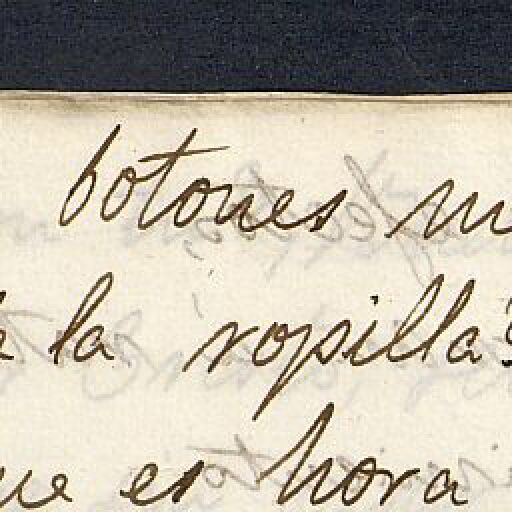 botones
la ropilla?
es hora